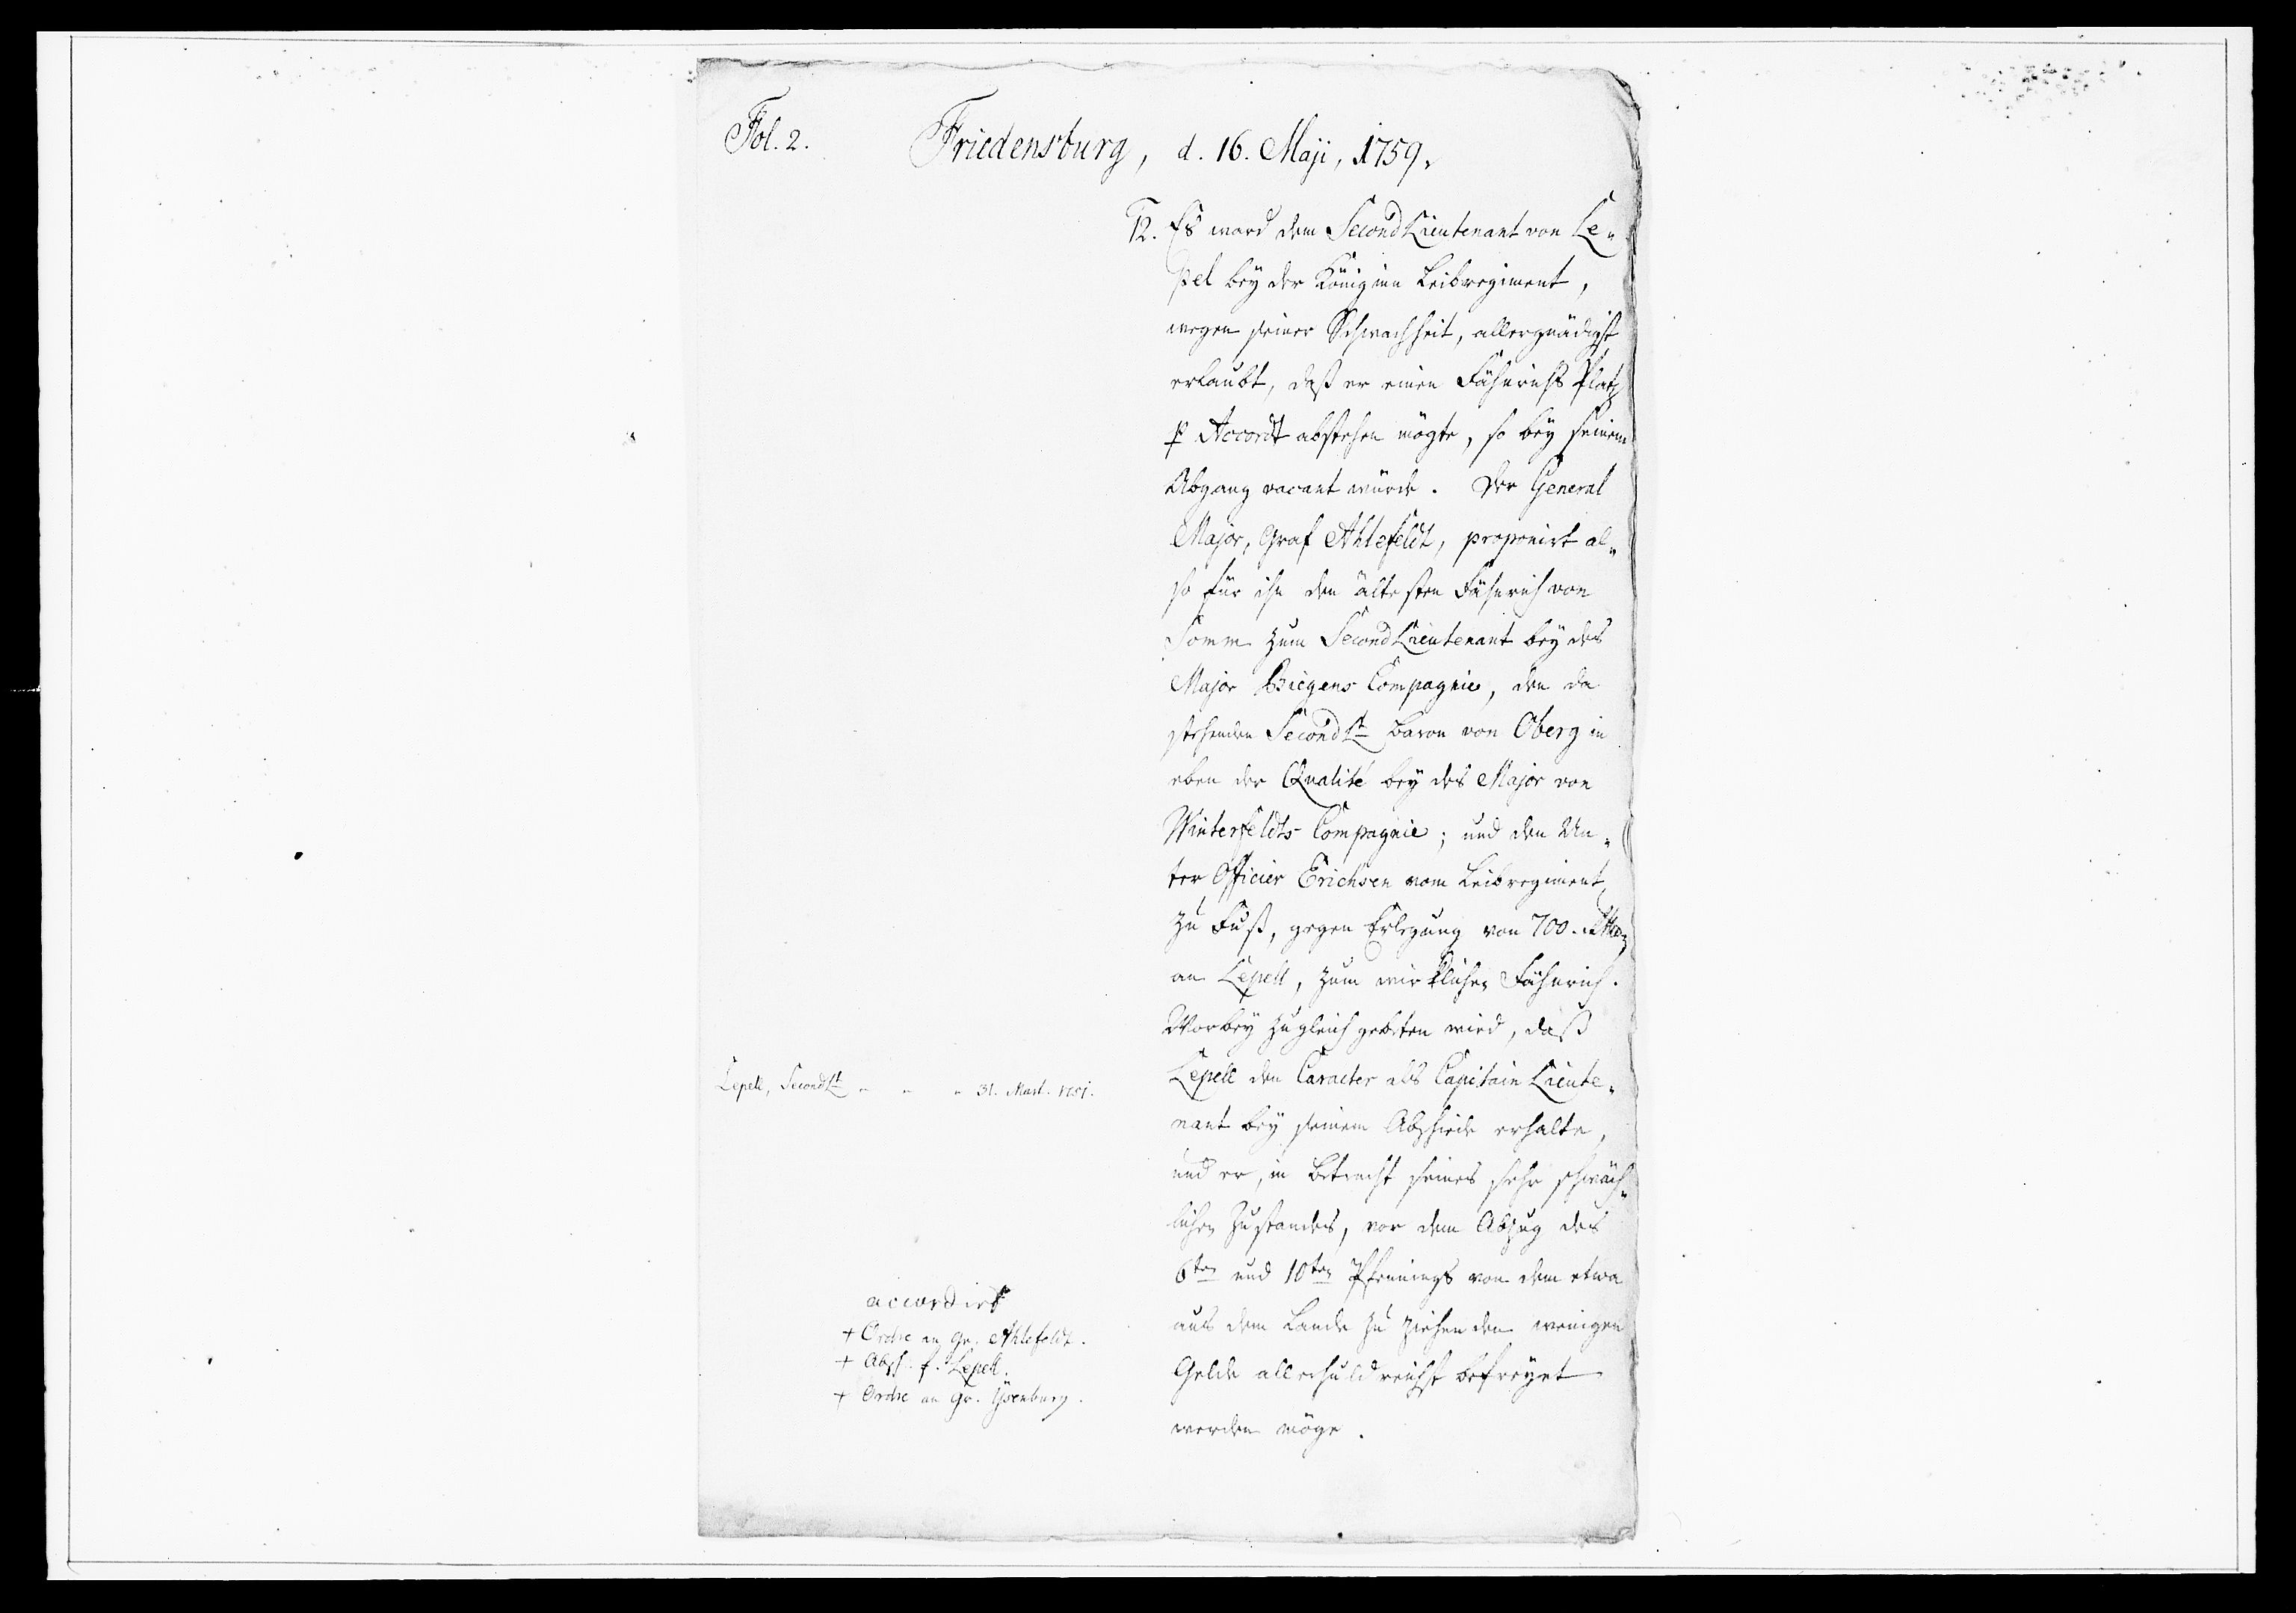 Fol. 2.
Friedensburg, d. 16. Maji, 1759.
12. Es ward dem Second Lieutenant von Le-
pel bey der Königinn Leibregiment,
wegen seiner Schwachheit, allergnädigst
erlaubt, daß er einen Fähnrichs Platz
p Accordt abstehen mögte, so bey seinem
Abgang vacant würde. Der General
Major, Graf Ahlefeldt, proponirt al-
so für ihn den ältesten Fähnrich von
Somm zum Second Lieutenant bey des
Major Biegens Compagnie, den da
stehenden Second Lt Baron von Oberg in
eben der Qualité bey des Major von
Winterfeldts Compagnie; und den Un-
ter Officier Erichsen vom Leibregiment
zu Fuß, gegen Erlegung von 700. Rthlr
an Lepell, zum wirklichen Fähnrich.
Worbey zugleich gebeten wird, daß
Lepell den Caracter als Capitain Lieute-
nant bey seinem Abschiede erhalte,
und er, in Betracht seines sehr schwäch-
lichen Zustandes, vor dem Abzug des
6ten und 10ten Pfennings von dem etwa
aus dem Lande zu ziehenden wenigen
Gelde allerhuldreichst befreyet
werden möge.
Lepell, Second Lt - - - 31. Mart. 1751.
accordirt
+ Ordre an Gr. Ahlefeldt.
+ Absch. f. Lepell.
+ Ordre an Gr. Ysenburg.